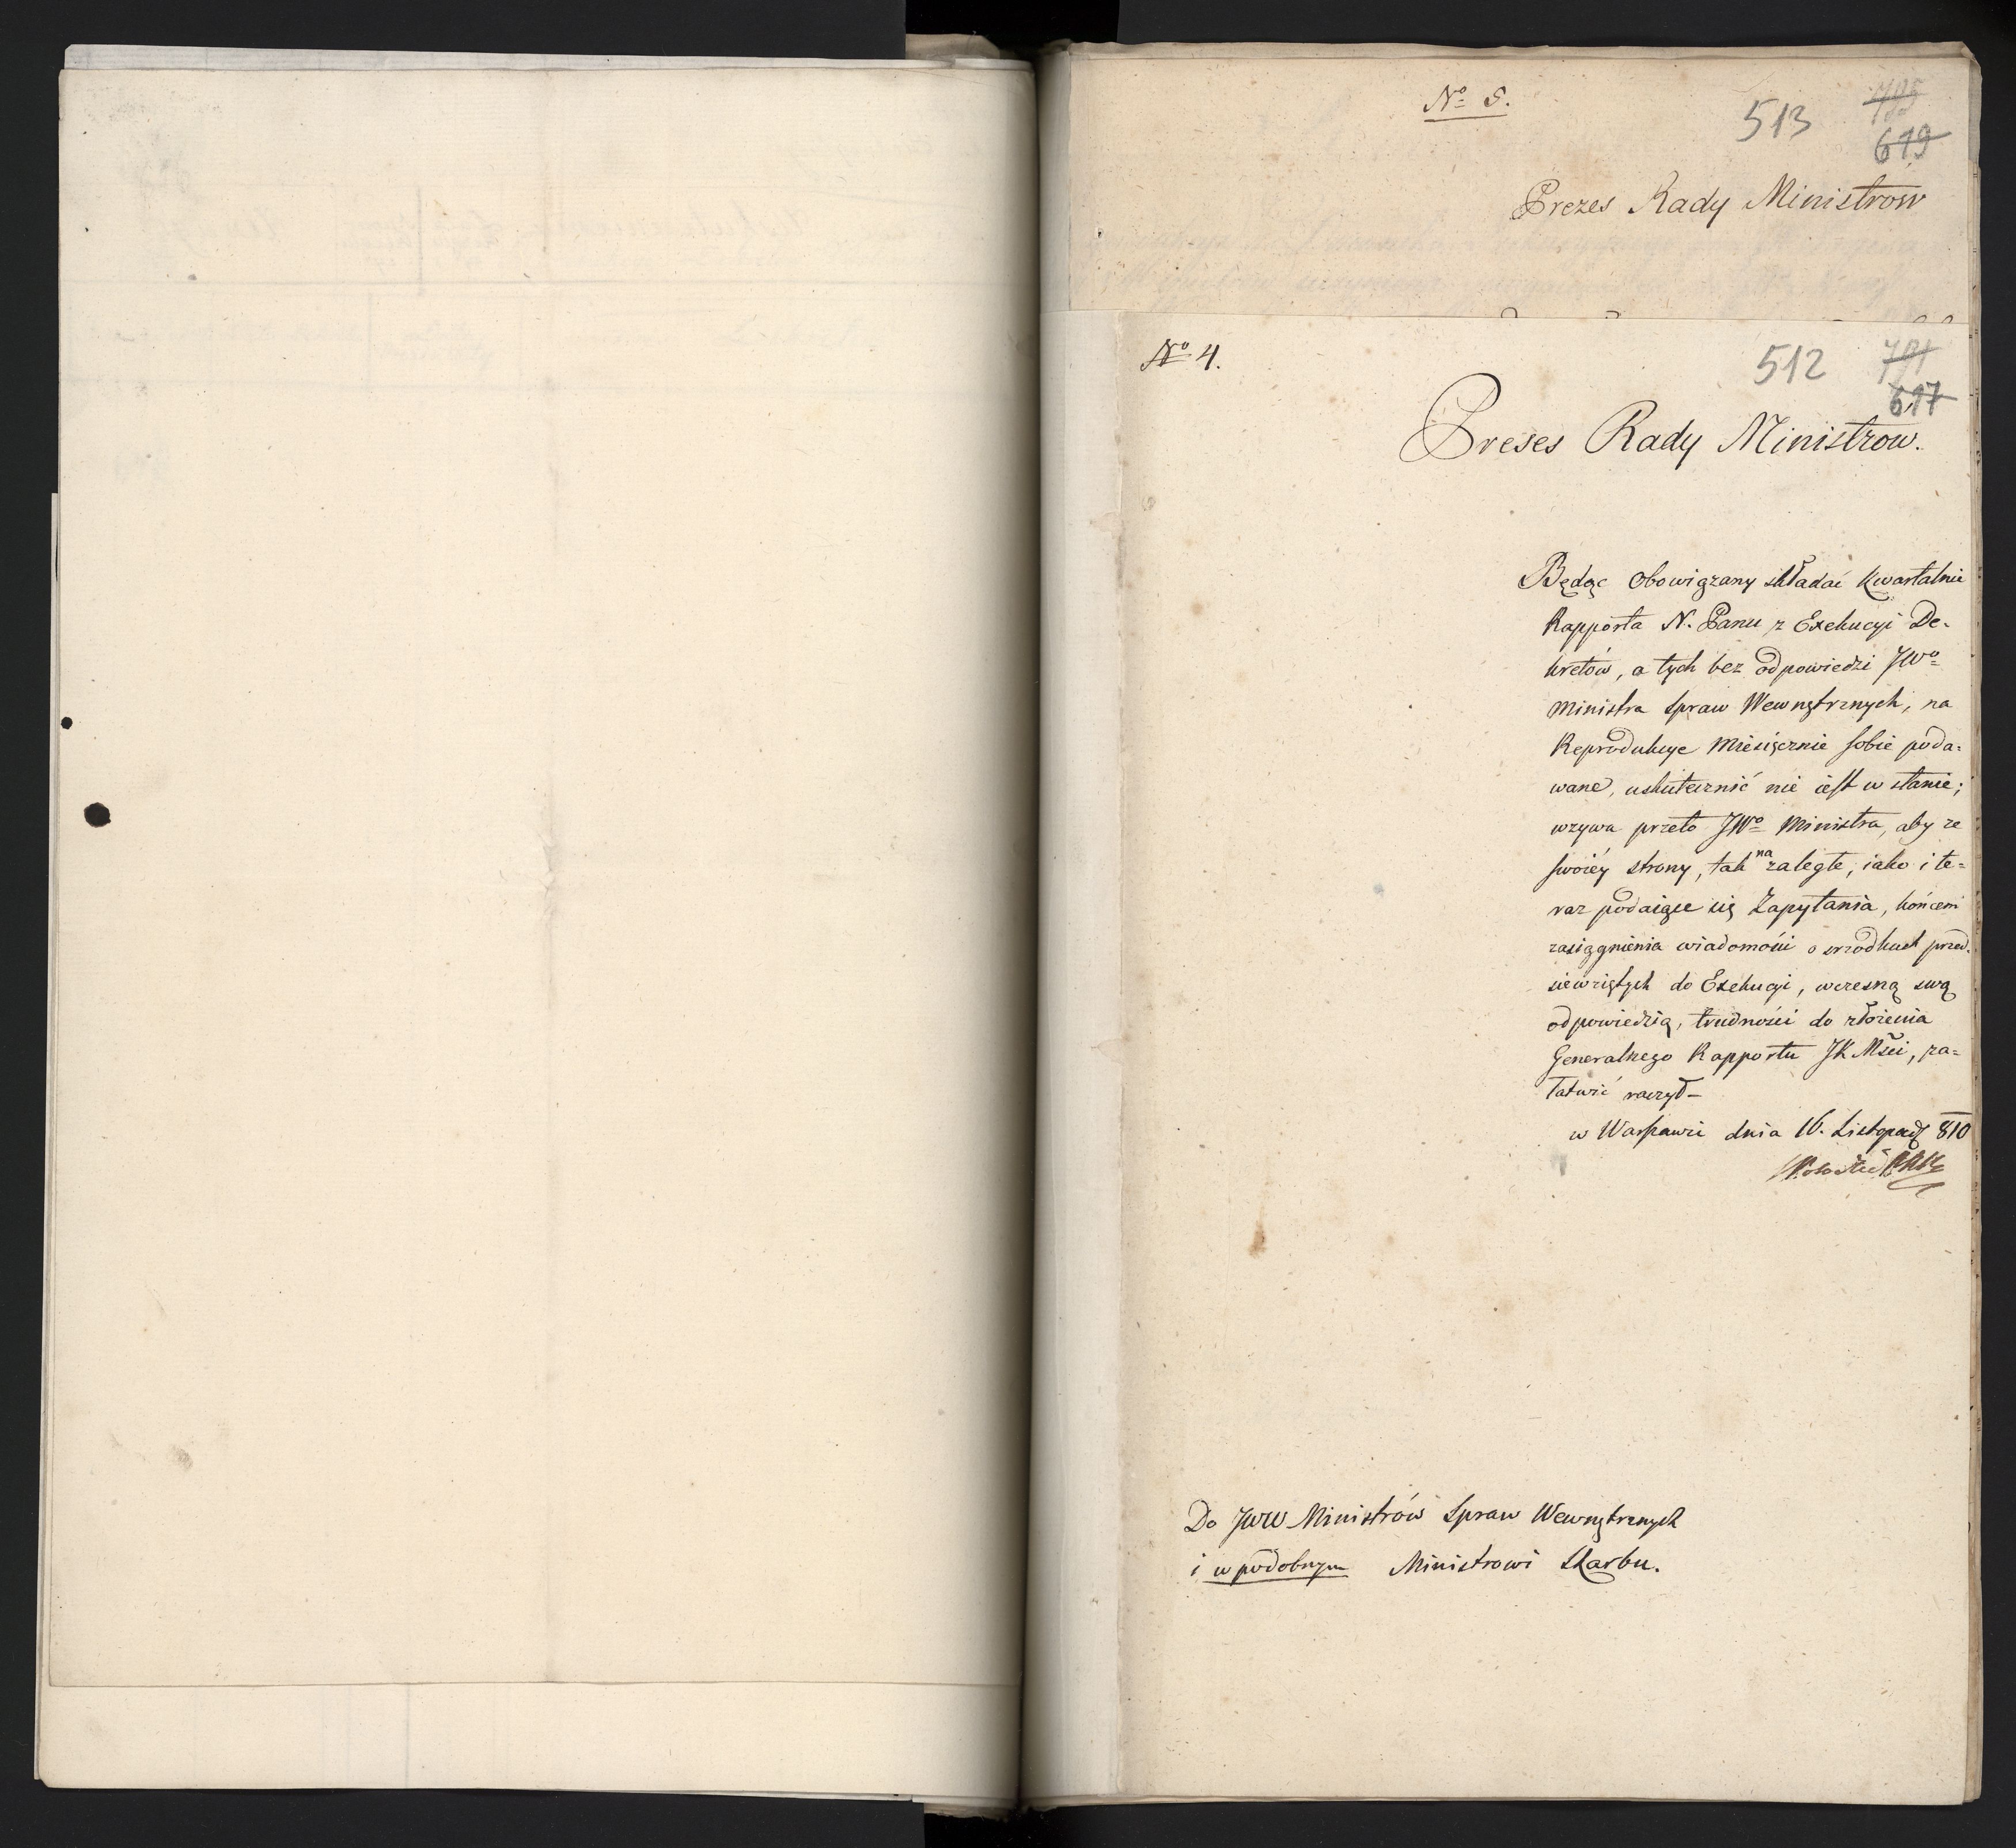 No 5.
513 795
619
Prezes Rady Ministrów
No 4.
512 791
617
Preses Rady Ministrow.
Będąc obowiązany składać kwartalnie
Rapporta N. Panu z Exekucyi De-
kretów, a tych bez odpowiedzi JWo
Ministra Spraw Wewnętrznych, na
Reprodukcye Miesięcznie sobie poda=
wane, uskutecznić nie iest w stanie;
wzywa przeto JWo Ministra, aby ze
swoiéy strony, tak na zaległe, iako i te=
raz podaiące się Zapytania, końcem
zasiągnienia wiadomości o srzodkach przed=
siewziętych do Exekucyi, wczesną swą
odpowiedzią, trudności do złożenia
Generalnego Rapportu JK Mści, za=
łatwić raczył —
w Warszawie dnia 16. Listopad 810
Do JWW Ministrów Spraw Wewnętrznych
i w podobnym Ministrowi Skarbu.